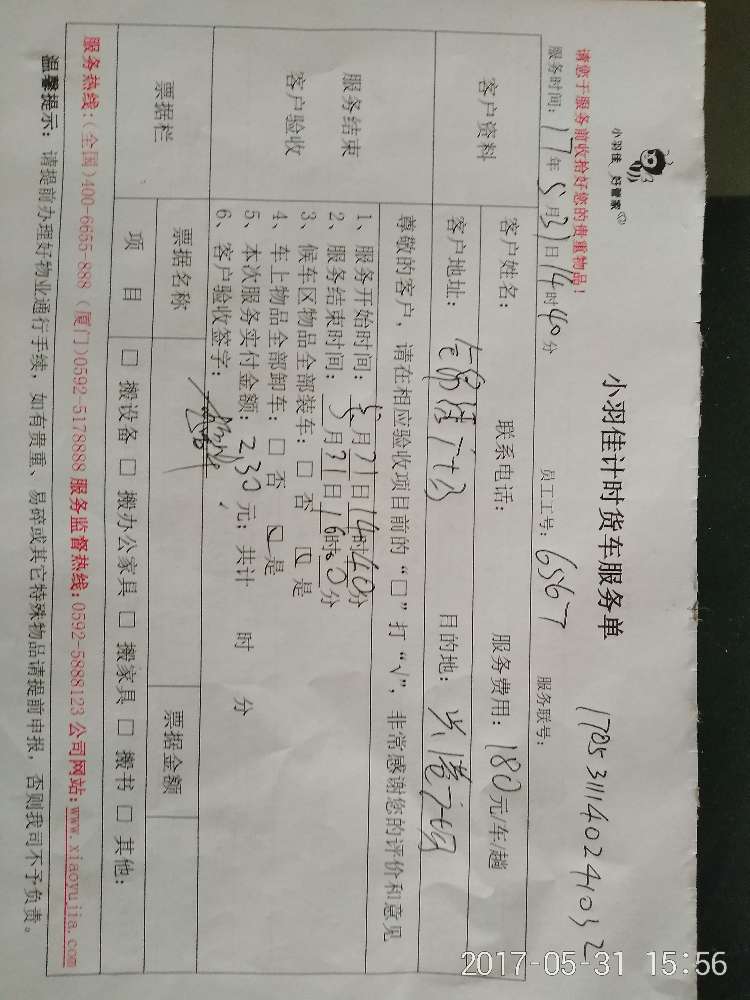 小羽佳 好管家
小羽佳计时货车服务单
请您于服务前收拾好您的贵重物品!
服务时间: 17年5月31日14时40分 员工工号: 6567 服务联号:
客户资料
客户姓名: 联系电话: 服务费用: 180元/车/趟
客户地址: 目的地:
尊敬的客户, 请在相应验收项目前的“□”打“√”, 非常感谢您的评价和意见
服务结束
客户验收
1、服务开始时间: 5月31日14时40分
2、服务结束时间: 5月31日16时 0分
3、候车区物品全部装车: □ 否 ☑ 是
4、车上物品全部卸车: □ 否 ☑ 是
5、本次服务实付金额: 230元; 共计 时 分
6、客户验收签字:
票据栏
票据名称 票据金额
项 目 □ 搬设备 □ 搬办公家具 □ 搬家具 □ 搬书 □ 其他:
服务热线:(全国)400-6655-888 (厦门)0592-5178888 服务监督热线:0592-5888123 公司网站:www.xiaoyujia.com
温馨提示: 请提前办理好物业通行手续, 如有贵重、易碎或其它特殊物品请提前申报, 否则我司不予负责。
2017-05-31 15:56